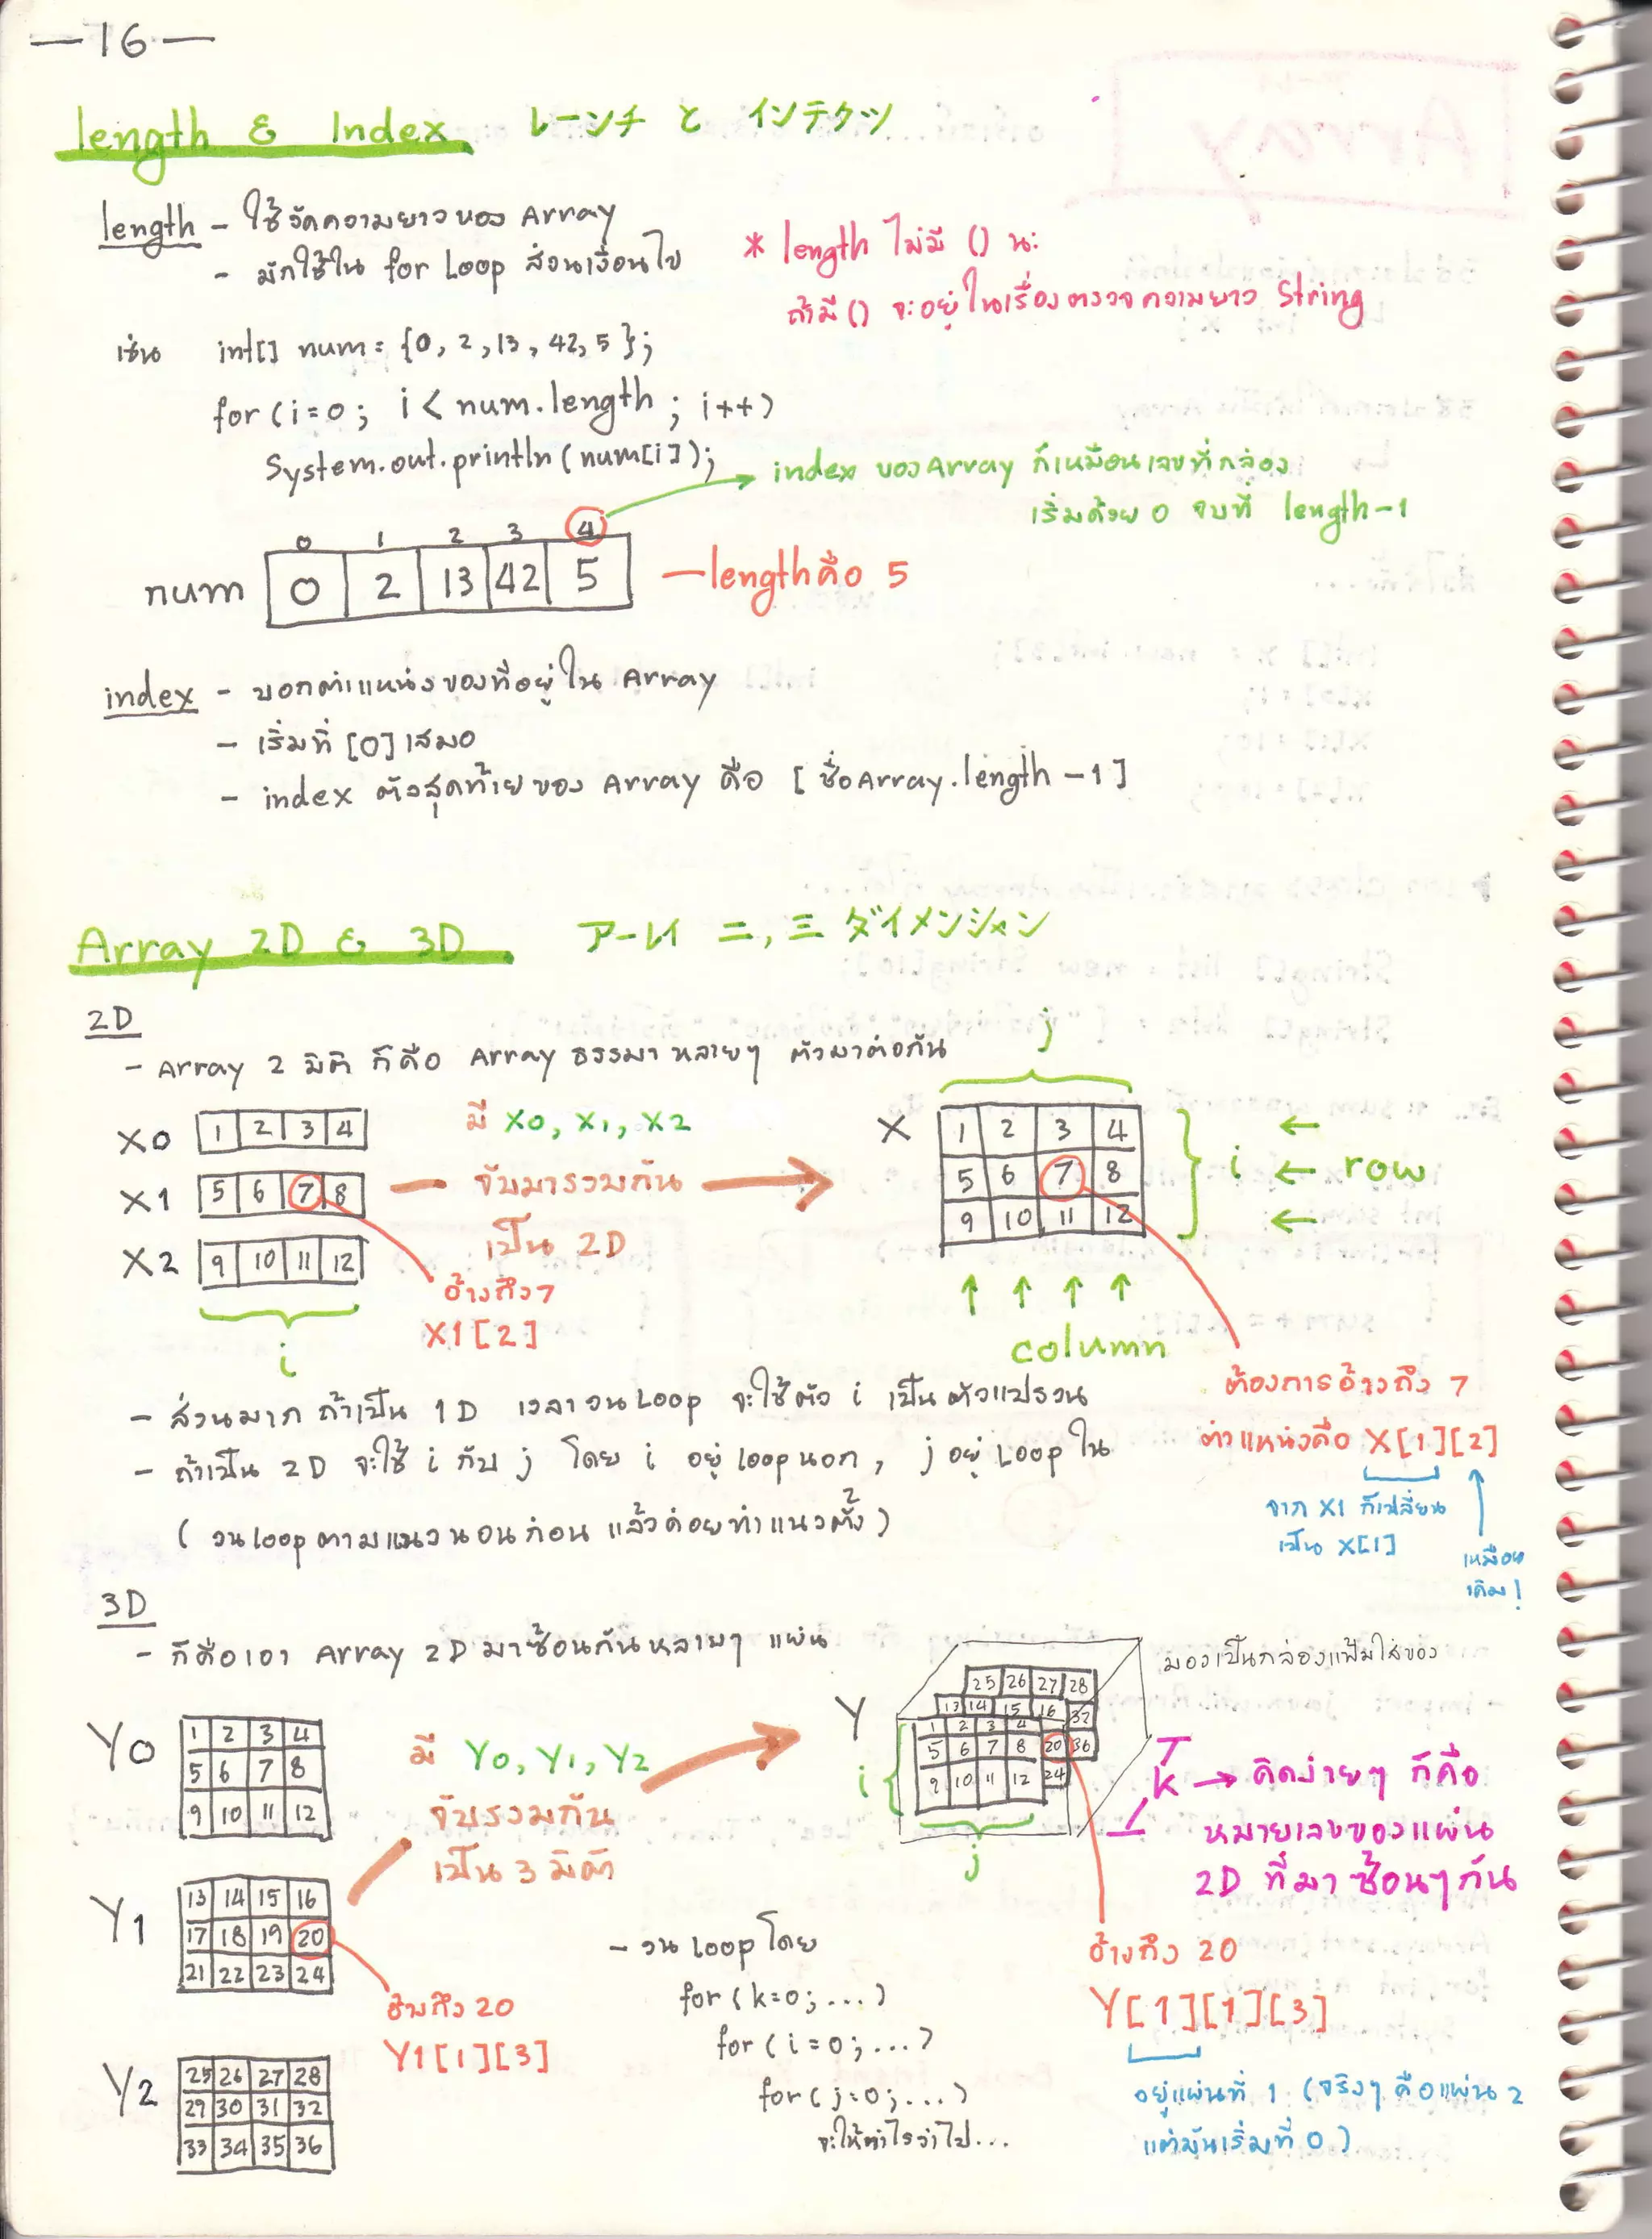 —16—
length & Index レーンチ と インテクツ
length - ใช้วัดความยาวของ Array
- มักใช้ใน for Loop ส่วนเงื่อนไข
* length ไม่มี () นะ
ถ้ามี () จะอยู่ในเรื่องตรวจความยาว String
เช่น int[] num = {0, 2, 13, 42, 5};
for (i=0; i < num.length; i++)
System.out.println(num[i]);
index ของ Array ก็เหมือนเลขที่กล่อง
เริ่มด้วย 0 จบที่ length-1
0 1 2 3 4
num 0 2 13 42 5
—length คือ 5
index - บอกตำแหน่งของที่อยู่ใน Array
- เริ่มที่ [0] เสมอ
- index ตัวสุดท้ายของ Array คือ [ชื่อArray.length-1]
Array 2D & 3D アーレイ 二, 三 ダイメンション
2D
- Array 2 มิติ ก็คือ Array ธรรมดาหลายๆ ตัวมาต่อกัน
X0 1 2 3 4
X1 5 6 7 8
X2 9 10 11 12
i
อ้างถึง 7
X1[2]
มี X0, X1, X2
จับมารวมกัน
เป็น 2D
j
X 1 2 3 4
5 6 7 8
9 10 11 12
i ← row
column
ต้องการอ้างถึง 7
ตำแหน่งคือ X[1][2]
จาก X1 ก็เปลี่ยน
เป็น X[1]
เหมือน
เดิม!
- ส่วนมาก ถ้าเป็น 1D เวลาวน Loop จะใช้ตัว i เป็นตัวแปรวน
- ถ้าเป็น 2D จะใช้ i กับ j โดย i อยู่ loop นอก, j อยู่ Loop ใน
(วน loop ตามแนวนอนก่อน แล้วค่อยทำแนวตั้ง)
3D
- ก็คือเอา Array 2D มาซ้อนกันหลายๆ แผ่น
Y0 1 2 3 4
5 6 7 8
9 10 11 12
Y1 13 14 15 16
17 18 19 20
21 22 23 24
Y2 25 26 27 28
29 30 31 32
33 34 35 36
อ้างถึง 20
Y1[1][3]
มี Y0, Y1, Y2
จับรวมกัน
เป็น 3 มิติ
มองเป็นกล่องแฟ้มใส่ของ
Y
25 26 27 28
13 14 15 16 32
1 2 3 4
5 6 7 8 20 36
9 10 11 12 24
i
j
k → คิดง่ายๆ ก็คือ
หมายเลขของแผ่น
2D ที่มาซ้อนๆกัน
- วน loop โดย
for (k=0; ...)
for (i=0; ...)
for (j=0; ...)
จะให้ทำไรว่าไป...
อ้างถึง 20
Y[1][1][3]
อยู่แผ่นที่ 1 (จริงๆ คือแผ่น 2
แต่มันเริ่มที่ 0)